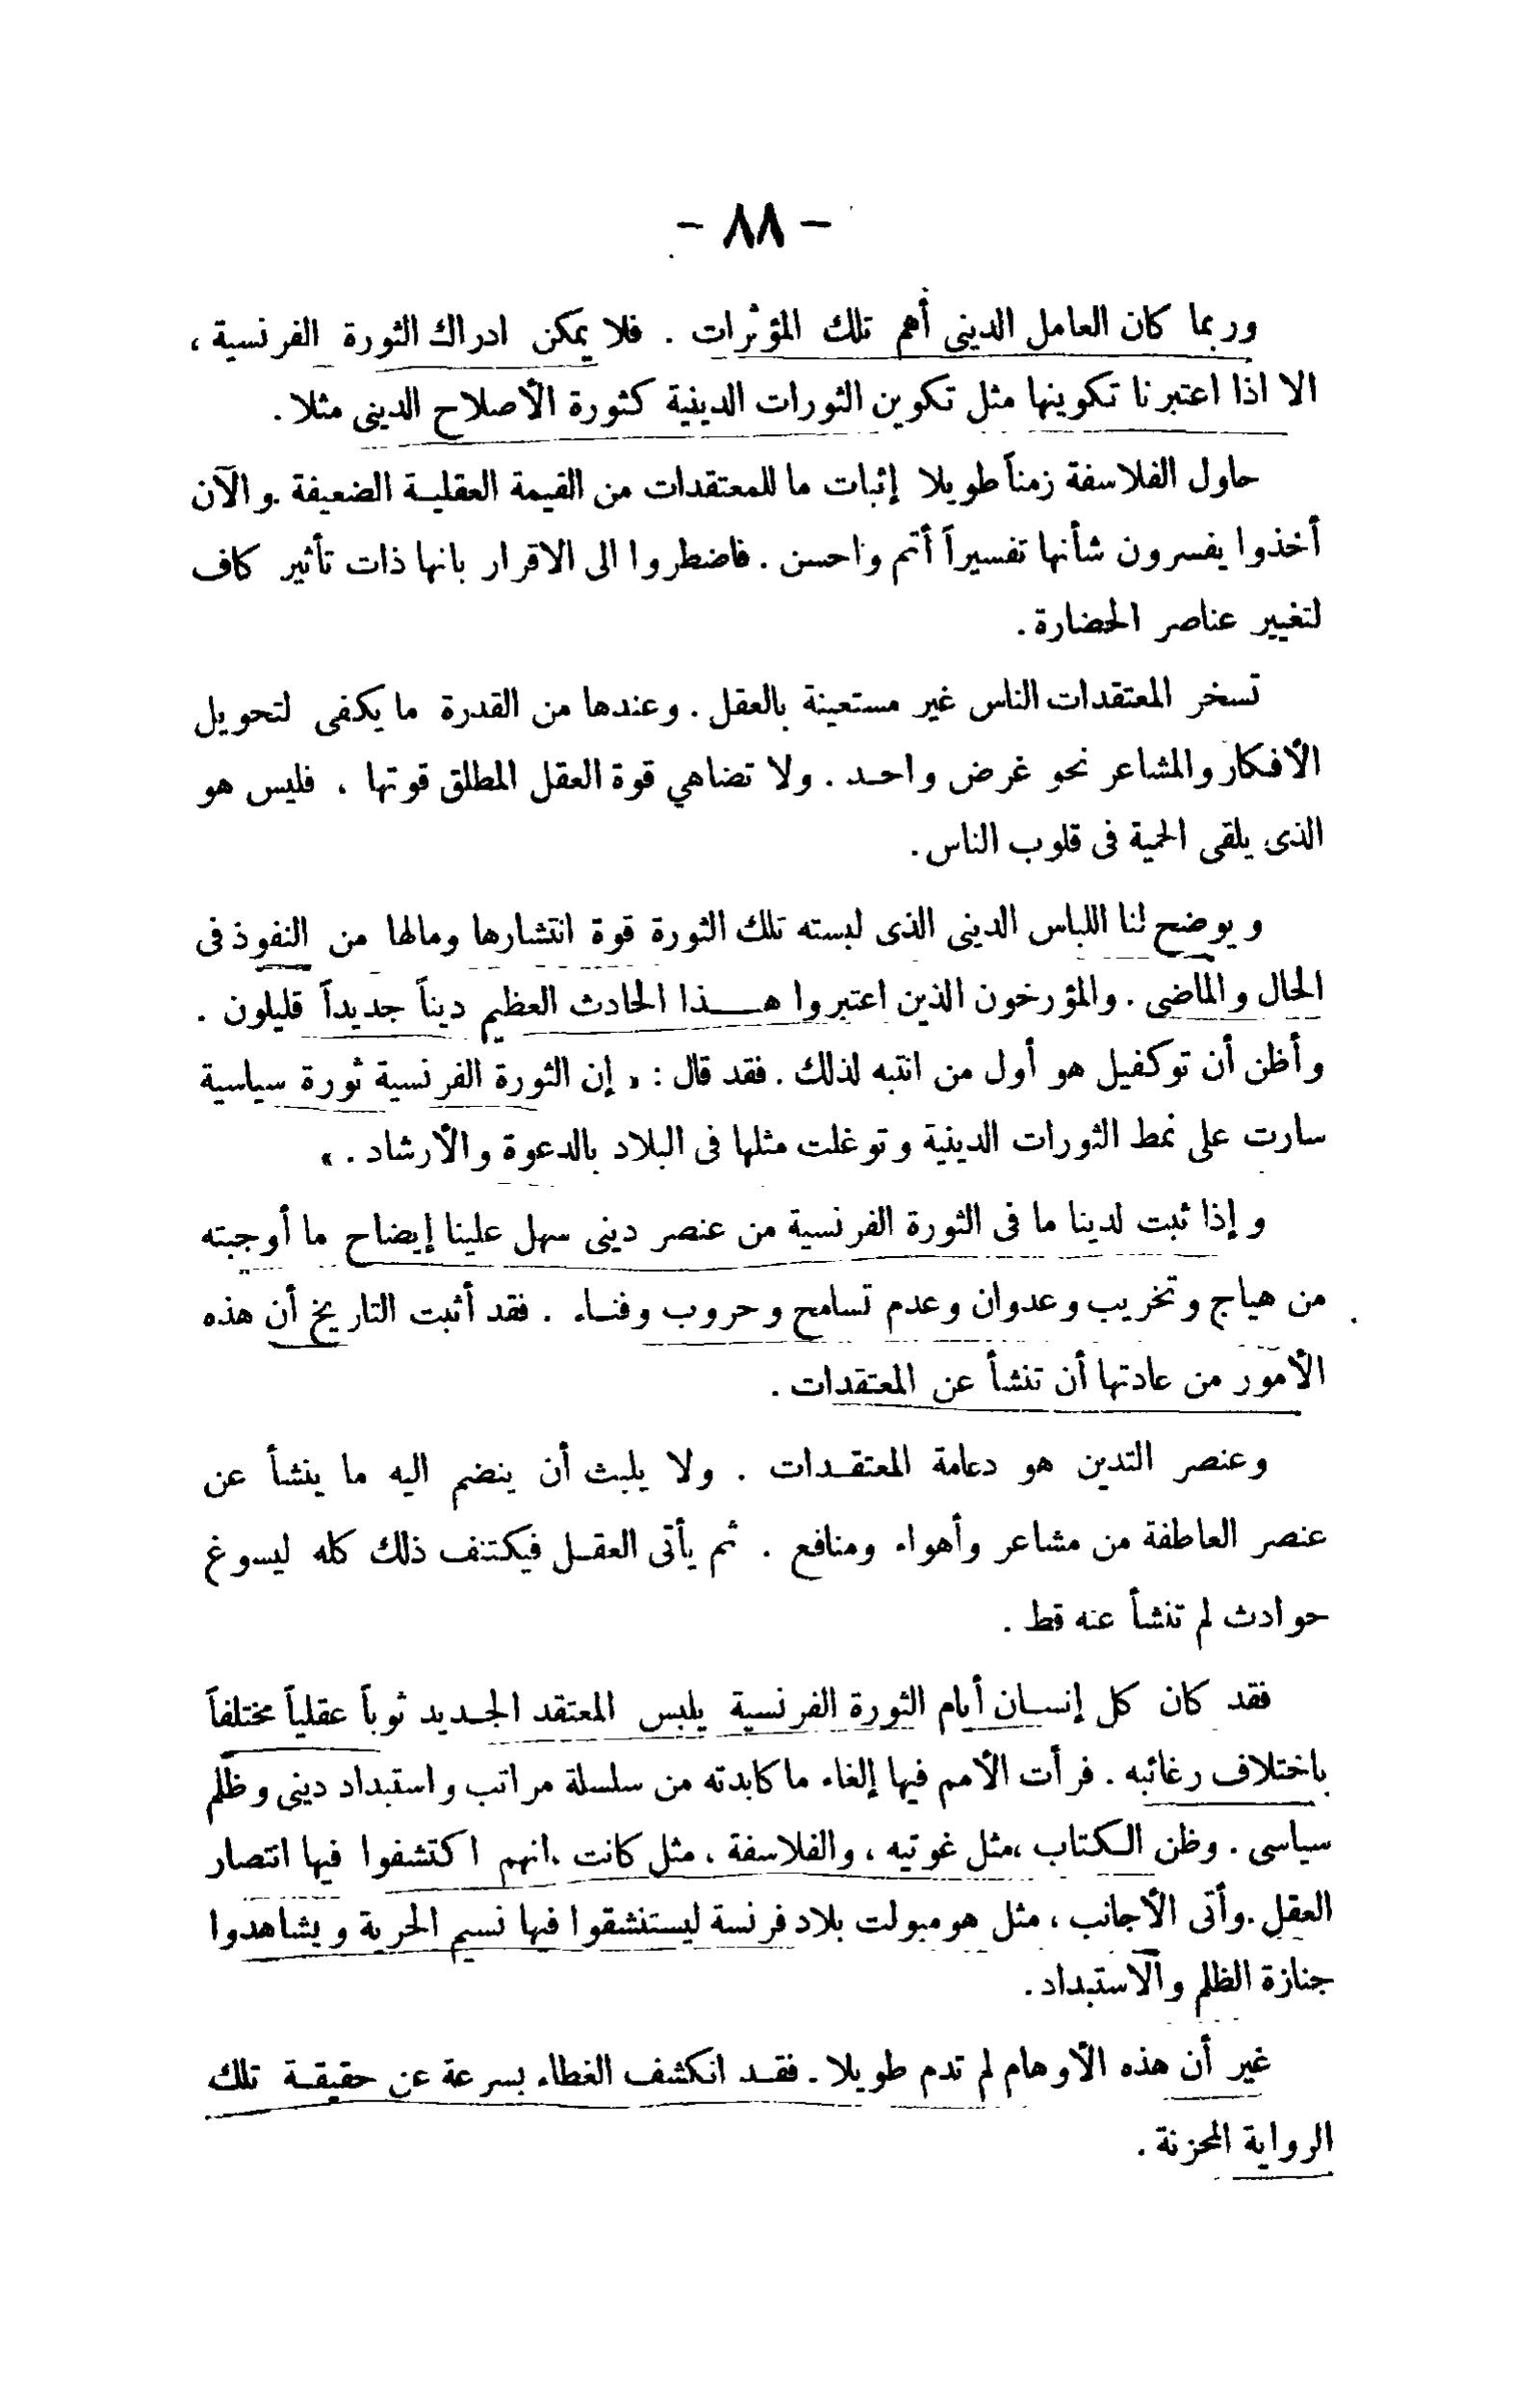 - ٨٨ -
وربما كان العامل الدينى أهم تلك المؤثرات . فلا يمكن ادراك الثورة الفرنسية ،
الا اذا اعتبرنا تكوينها مثل تكوين الثورات الدينية كثورة الأصلاح الدينى مثلا .
حاول الفلاسفة زمناً طويلا إثبات ما للمعتقدات من القيمة العقلية الضعيفة . والآن
أخذوا يفسرون شأنها تفسيراً أتم واحسن . فاضطروا الى الاقرار بانها ذات تأثير كاف
لتغيير عناصر الحضارة .
تسخر المعتقدات الناس غير مستعينة بالعقل . وعندها من القدرة ما يكفى لتحويل
الأفكار والمشاعر نحو غرض واحد . ولا تضاهي قوة العقل المطلق قوتها ، فليس هو
الذى يلقى الحمية فى قلوب الناس .
ويوضح لنا اللباس الدينى الذى لبسته تلك الثورة قوة انتشارها ومالها من النفوذ فى
الحال والماضى . والمؤرخون الذين اعتبروا هذا الحادث العظيم ديناً جديداً قليلون .
وأظن أن توكفيل هو أول من انتبه لذلك . فقد قال : « إن الثورة الفرنسية ثورة سياسية
سارت على نمط الثورات الدينية وتوغلت مثلها فى البلاد بالدعوة والأرشاد . »
وإذا ثبت لدينا ما فى الثورة الفرنسية من عنصر دينى سهل علينا إيضاح ما أوجبته
من هياج وتخريب وعدوان وعدم تسامح وحروب وفناء . فقد أثبت التاريخ أن هذه
الأمور من عادتها أن تنشأ عن المعتقدات .
وعنصر التدين هو دعامة المعتقدات . ولا يلبث أن ينضم اليه ما ينشأ عن
عنصر العاطفة من مشاعر وأهواء ومنافع . ثم يأتى العقل فيكتنف ذلك كله ليسوغ
حوادث لم تنشأ عنه قط .
فقد كان كل إنسان أيام الثورة الفرنسية يلبس المعتقد الجديد ثوباً عقلياً مختلفاً
باختلاف رغائبه . فرأت الأمم فيها إلغاء ما كابدته من سلسلة مراتب واستبداد دينى وظلم
سياسى . وظن الكتاب ، مثل غوتيه ، والفلاسفة ، مثل كانت ، انهم اكتشفوا فيها انتصار
العقل . وأتى الأجانب ، مثل هومبولت بلاد فرنسة ليستنشقوا فيها نسيم الحرية ويشاهدوا
جنازة الظلم والاستبداد .
غير أن هذه الأوهام لم تدم طويلا . فقد انكشف الغطاء بسرعة عن حقيقة تلك
الرواية المحزنة .